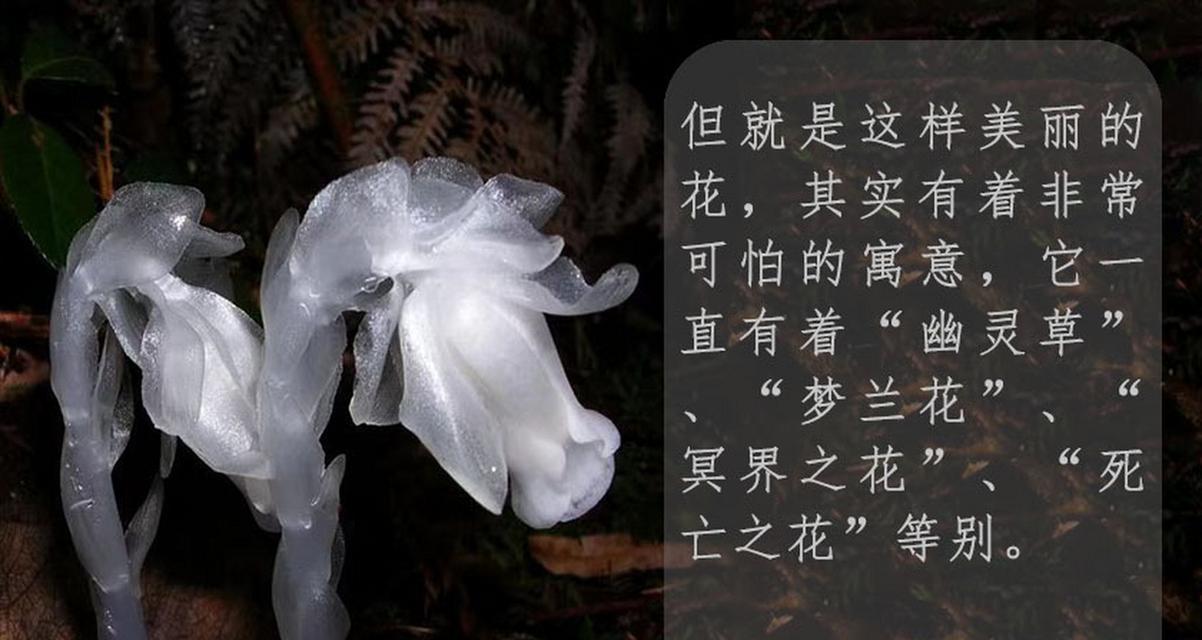 但就是这样美丽的
花，其实有着非常
可怕的寓意，它一
直有着“幽灵草”
、“梦兰花”、“
冥界之花”、“死
亡之花”等别。